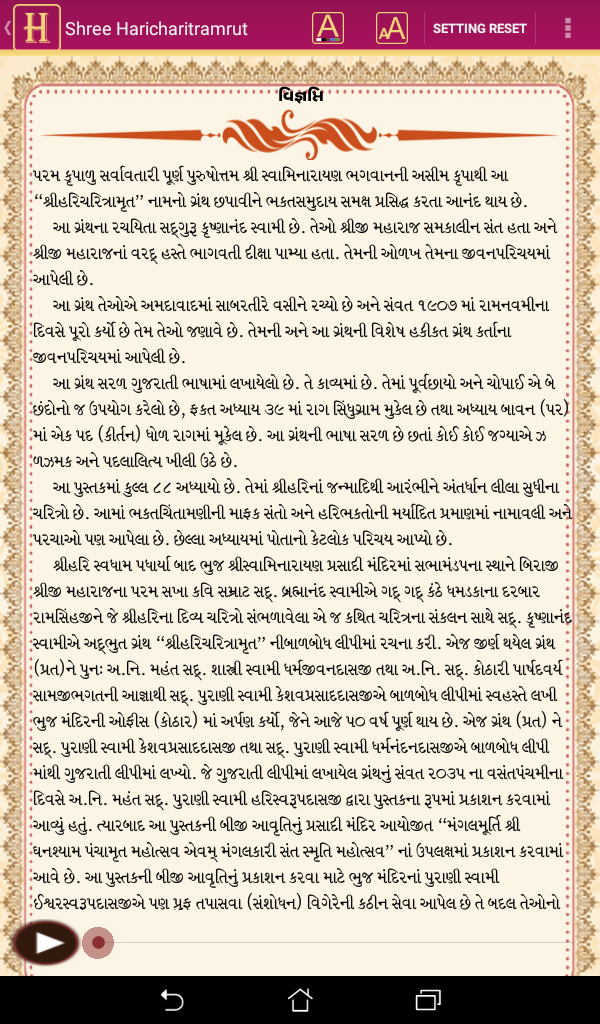 H Shree Haricharitramrut A AA SETTING RESET
વિજ્ઞપ્તિ
પરમ કૃપાળુ સર્વાવતારી પૂર્ણ પુરુષોત્તમ શ્રી સ્વામિનારાયણ ભગવાનની અસીમ કૃપાથી આ
‘‘શ્રીહરિચરિત્રામૃત’’ નામનો ગ્રંથ છપાવીને ભક્તસમુદાય સમક્ષ પ્રસિદ્ધ કરતા આનંદ થાય છે.
આ ગ્રંથના રચયિતા સદ્‌ગુરૂ કૃષ્ણાનંદ સ્વામી છે. તેઓ શ્રીજી મહારાજ સમકાલીન સંત હતા અને
શ્રીજી મહારાજનાં વરદ્ હસ્તે ભાગવતી દીક્ષા પામ્યા હતા. તેમની ઓળખ તેમના જીવનપરિચયમાં
આપેલી છે.
આ ગ્રંથ તેઓએ અમદાવાદમાં સાબરતીરે વસીને રચ્યો છે અને સંવત ૧૯૦૭ માં રામનવમીના
દિવસે પૂરો કર્યો છે તેમ તેઓ જણાવે છે. તેમની અને આ ગ્રંથની વિશેષ હકીકત ગ્રંથ કર્તાના
જીવનપરિચયમાં આપેલી છે.
આ ગ્રંથ સરળ ગુજરાતી ભાષામાં લખાયેલો છે. તે કાવ્યમાં છે. તેમાં પૂર્વછાયો અને ચોપાઈ એ બે
છંદોનો જ ઉપયોગ કરેલો છે, ફકત અધ્યાય ૩૯ માં રાગ સિંધુગ્રામ મુકેલ છે તથા અધ્યાય બાવન (પર)
માં એક પદ (કીર્તન) ધોળ રાગમાં મૂકેલ છે. આ ગ્રંથની ભાષા સરળ છે છતાં કોઈ કોઈ જગ્યાએ ઝ
ળઝમક અને પદલાલિત્ય ખીલી ઉઠે છે.
આ પુસ્તકમાં કુલ્લ ૮૮ અધ્યાયો છે. તેમાં શ્રીહરિનાં જન્માદિથી આરંભીને અંતર્ધાન લીલા સુધીના
ચરિત્રો છે. આમાં ભક્તચિંતામણીની માફક સંતો અને હરિભકતોની મર્યાદિત પ્રમાણમાં નામાવલી અને
પરચાઓ પણ આપેલા છે. છેલ્લા અધ્યાયમાં પોતાનો કેટલોક પરિચય આપ્યો છે.
શ્રીહરિ સ્વધામ પધાર્યા બાદ ભુજ શ્રીસ્વામિનારાયણ પ્રસાદી મંદિરમાં સભામંડપના સ્થાને બિરાજી
શ્રીજી મહારાજના પરમ સખા કવિ સમ્રાટ સદ્. બ્રહ્માનંદ સ્વામીએ ગદ્ ગદ્ કંઠે ધમડકાના દરબાર
રામસિંહજીને જે શ્રીહરિના દિવ્ય ચરિત્રો સંભળાવેલા એ જ કથિત ચરિત્રના સંકલન સાથે સદ્. કૃષ્ણાનંદ
સ્વામીએ અદ્‌ભુત ગ્રંથ ‘‘શ્રીહરિચરિત્રામૃત’’ નીબાળબોધ લીપીમાં રચના કરી. એજ જીર્ણ થયેલ ગ્રંથ
(પ્રત)ને પુનઃ અ.નિ. મહંત સદ્. શાસ્ત્રી સ્વામી ધર્મજીવનદાસજી તથા અ.નિ. સદ્. કોઠારી પાર્ષદવર્ય
સામજીભગતની આજ્ઞાથી સદ્. પુરાણી સ્વામી કેશવપ્રસાદદાસજીએ બાળબોધ લીપીમાં સ્વહસ્તે લખી
ભુજ મંદિરની ઓફીસ (કોઠાર) માં અર્પણ કર્યો, જેને આજે ૫૦ વર્ષ પૂર્ણ થાય છે. એજ ગ્રંથ (પ્રત) ને
સદ્. પુરાણી સ્વામી કેશવપ્રસાદદાસજી તથા સદ્. પુરાણી સ્વામી ધર્મનંદનદાસજીએ બાળબોધ લીપી
માંથી ગુજરાતી લીપીમાં લખ્યો. જે ગુજરાતી લીપીમાં લખાયેલ ગ્રંથનું સંવત ૨૦૩૫ ના વસંતપંચમીના
દિવસે અ.નિ. મહંત સદ્. પુરાણી સ્વામી હરિસ્વરૂપદાસજી દ્વારા પુસ્તકના રૂપમાં પ્રકાશન કરવામાં
આવ્યું હતું. ત્યારબાદ આ પુસ્તકની બીજી આવૃતિનું પ્રસાદી મંદિર આયોજીત ‘‘મંગલમૂર્તિ શ્રી
ઘનશ્યામ પંચામૃત મહોત્સવ એવમ્ મંગલકારી સંત સ્મૃતિ મહોત્સવ’’ નાં ઉપલક્ષમાં પ્રકાશન કરવામાં
આવે છે. આ પુસ્તકની બીજી આવૃતિનું પ્રકાશન કરવા માટે ભુજ મંદિરનાં પુરાણી સ્વામી
ઈશ્વરસ્વરૂપદાસજીએ પણ પ્રૂફ તપાસવા (સંશોધન) વિગેરેની કઠીન સેવા આપેલ છે તે બદલ તેઓનો